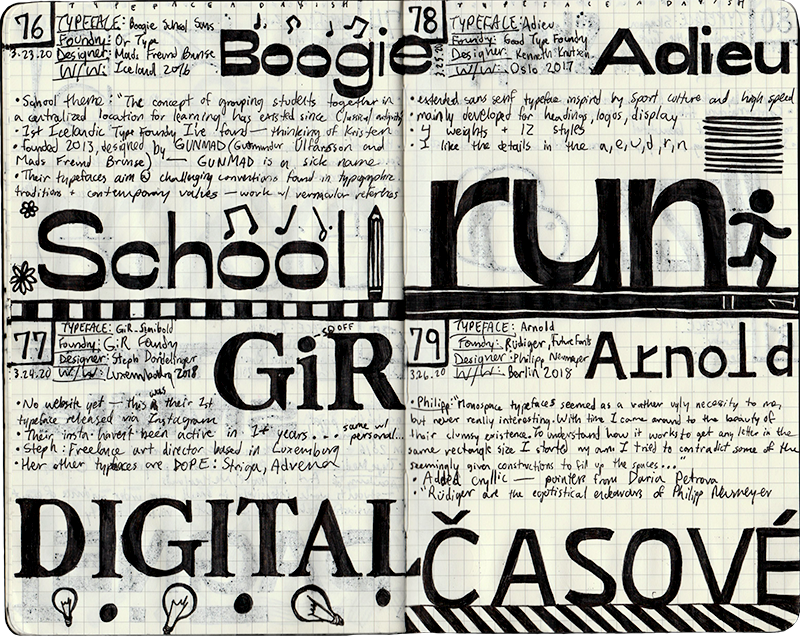 TYPEFACE
76
TYPEFACE: Boogie School Sans
Foundry: Or Type
Designer: Mads Freund Brunse
3.23.20
W/W: Iceland 2016
Boogie
• School theme: "The concept of grouping students together in
a centralized location for learning has existed since Classical antiquity
• 1st Icelandic Type Foundry I've found — thinking of Kristen
• founded 2013, designed by GUNMAD (Guðmundur Úlfarsson and
Mads Freund Brunse) — GUNMAD is a sick name
• Their typefaces aim @ challenging conventions found in typographic
traditions + contemporary values — work w/ vernacular references
School
77
TYPEFACE: GiR-Semibold
Foundry: GiR Foundry
Designer: Steph Dordellinger
3.24.20
W/W: Luxembourg 2018
GiR
SO OFF
• No website yet — this was their 1st
typeface released via Instagram
• Their insta haven't been active in 1+ years... same w/
personal...
• Steph: Freelance art director based in Luxemburg
• Her other typefaces are DOPE: Striga, Advena
DIGITAL
TYPEFACE
78
TYPEFACE: Adieu
Foundry: Good Type Foundry
Designer: Kenneth Knutsen
3.25.20
W/W: Oslo 2017
Adieu
• extended sans serif typeface inspired by sport culture and high speed
• mainly developed for headings, logos, display
• 4 weights + 12 styles
• I like the details in the a, e, u, d, r, n
run
79
TYPEFACE: Arnold
Foundry: Rüdiger, Future Fonts
Designer: Philipp Neumeyer
3.26.20
W/W: Berlin 2018
Arnold
• Philipp: "Monospace typefaces seemed as a rather ugly necessity to me,
but never really interesting. With time I came around to the beauty of
their clumsy existence. To understand how it works to get any letter in the
same rectangle size I started my own. I tried to contradict some of the
seemingly given constructions to fill up the spaces..."
• Added cryllic — pointers from Daria Petrova
• "Rüdiger are the egotistical endeavours of Philipp Neumeyer
ČASOVÉ